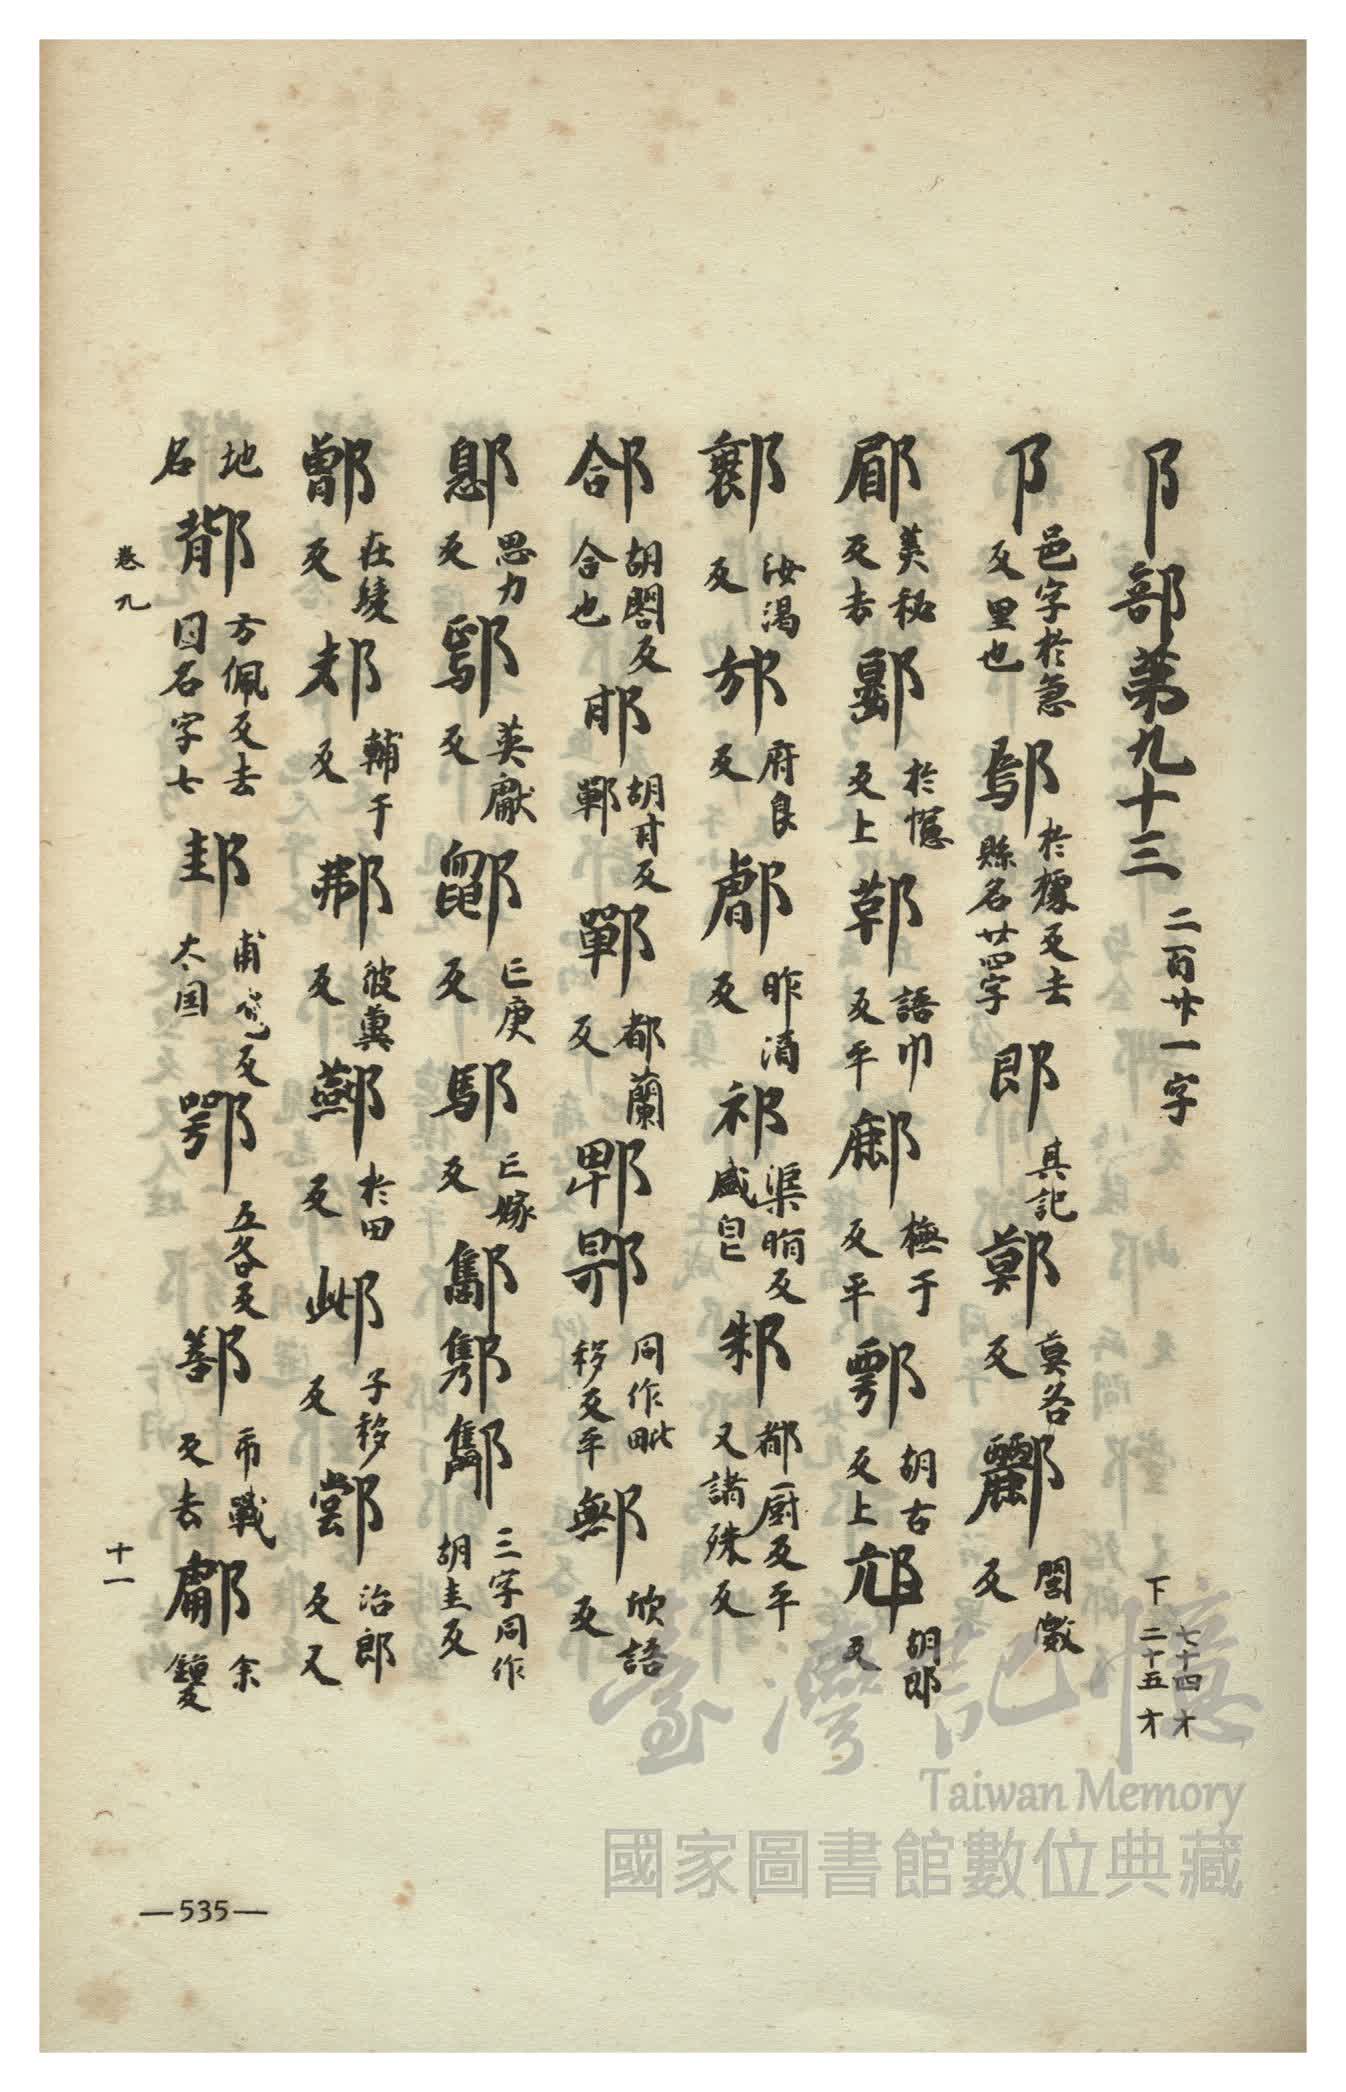 阝部第九十三 二百廿一字 下 七十四才 二十五才
阝 邑字於急反里也 鄔 於據反去縣名廿四字 郎 具記 鄚 莫各反 酈 閭激反
郿 美秘反去 郾 於幰反上 鄞 語巾反平 鄜 極于反平 鄠 胡古反上 邟 胡郎反
鄴 汝渴反 邡 府良反 鄐 昨酒反 祁 渠脂反盛皃 邾 都厨反平又諸殊反
郃 胡閤反合也 邯 胡甘反鄲 鄲 都蘭反 同作毗移反平 鄦 欣語反
鄎 思力反 鄢 英獻反 亡庚反 鄢 亡嫁反 酅 三字同作胡圭反
鄫 在陵反 邞 輔于反 鄪 彼冀反 酀 於田反 子移反 鄣 治郎反又
地名 鄁 方佩反去国名字七 邽 甫 反大国 鄂 五各反 鄯 市戰反去 鄘 余鐘反
卷九 十一
—535—
臺灣記憶
Taiwan Memory
國家圖書館數位典藏